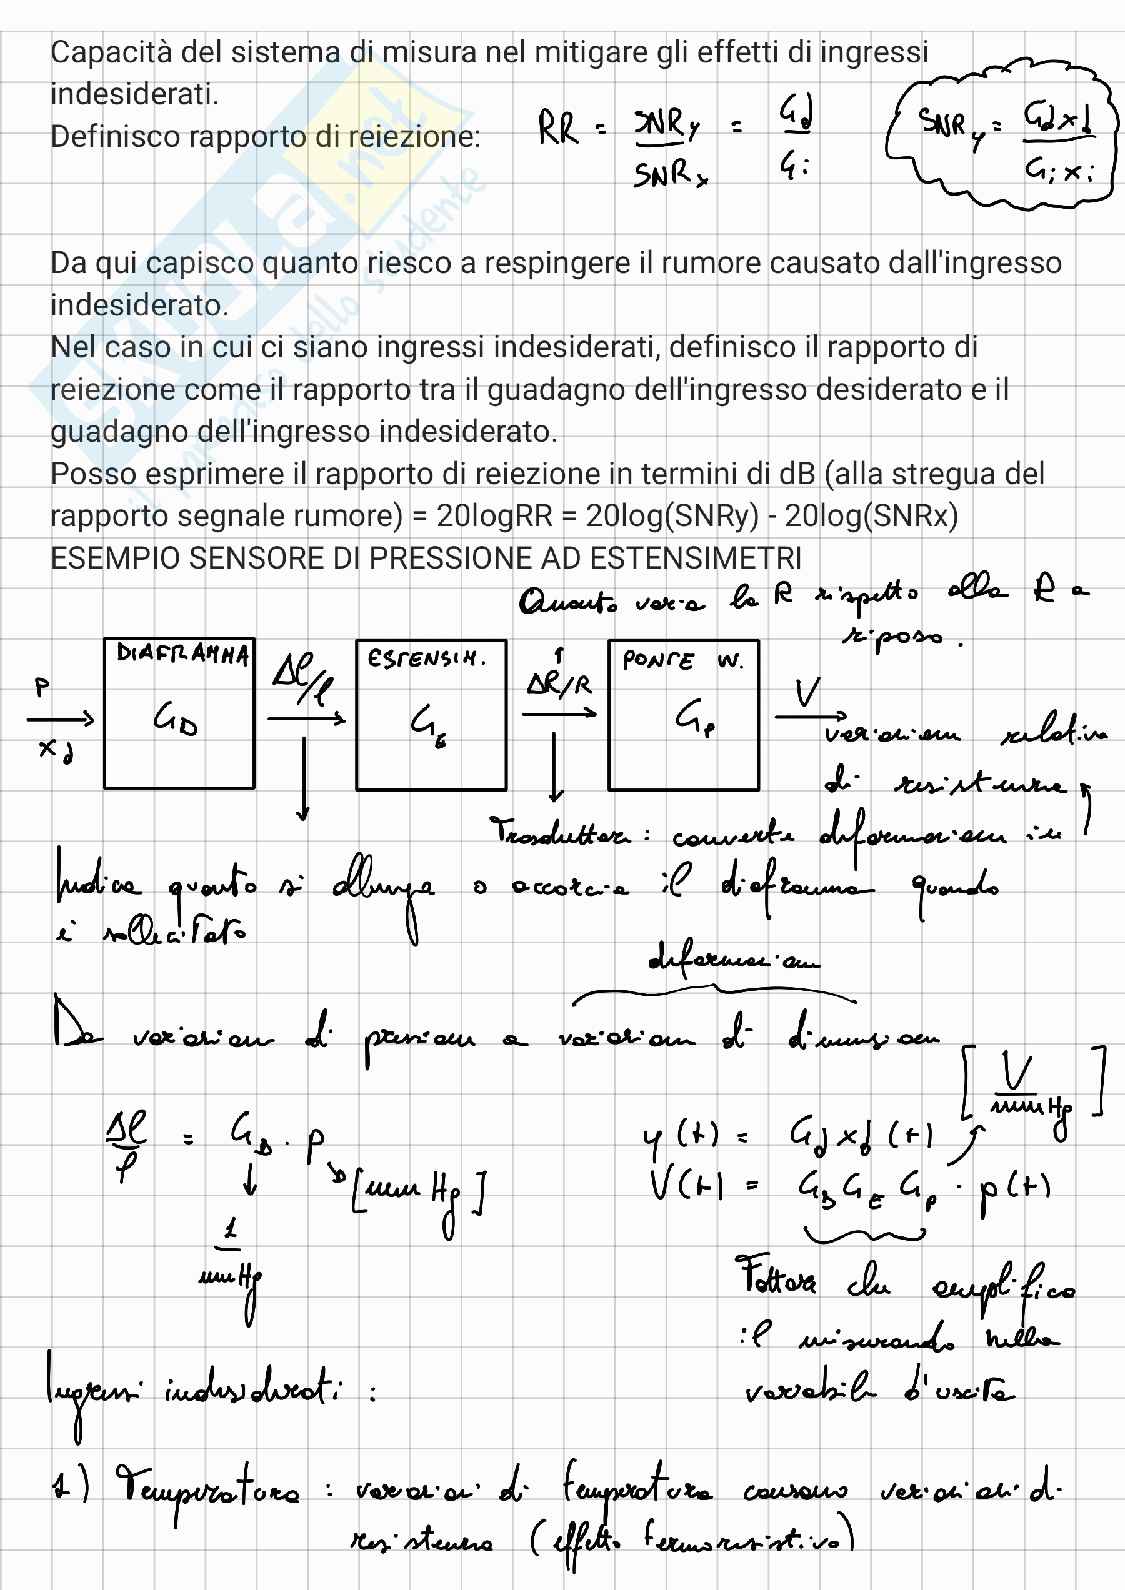 Capacità del sistema di misura nel mitigare gli effetti di ingressi
indesiderati.
Definisco rapporto di reiezione:
RR = SNRy / SNRx = Gd / Gi
SNRy = Gd xd / Gi xi
Da qui capisco quanto riesco a respingere il rumore causato dall'ingresso
indesiderato.
Nel caso in cui ci siano ingressi indesiderati, definisco il rapporto di
reiezione come il rapporto tra il guadagno dell'ingresso desiderato e il
guadagno dell'ingresso indesiderato.
Posso esprimere il rapporto di reiezione in termini di dB (alla stregua del
rapporto segnale rumore) = 20logRR = 20log(SNRy) - 20log(SNRx)
ESEMPIO SENSORE DI PRESSIONE AD ESTENSIMETRI
Quanto varia la R rispetto alla R a
riposo.
P
xd
DIAFRAMMA
GD
Δl/l
ESTENSIM.
GE
ΔR/R
PONTE W.
GP
V
variazione relativa
di resistenza
Trasduttore: converte deformazione in
Indica quanto si allunga o accorcia il diaframma quando
è sollecitato
deformazione
Da variazione di pressione a variazione di dimensione
[V / mmHg]
Δl / l = GD · p
[mm Hg]
1 / mmHg
y(t) = Gd xd (t)
V(t) = GD GE GP · p(t)
Fattore che amplifica
il misurando nella
variabile d'uscita
Ingressi indesiderati:
1) Temperatura: variazioni di temperatura causano variazioni di
resistenza (effetto termoresistivo)
SKUOLA.net
il paradiso dello studente